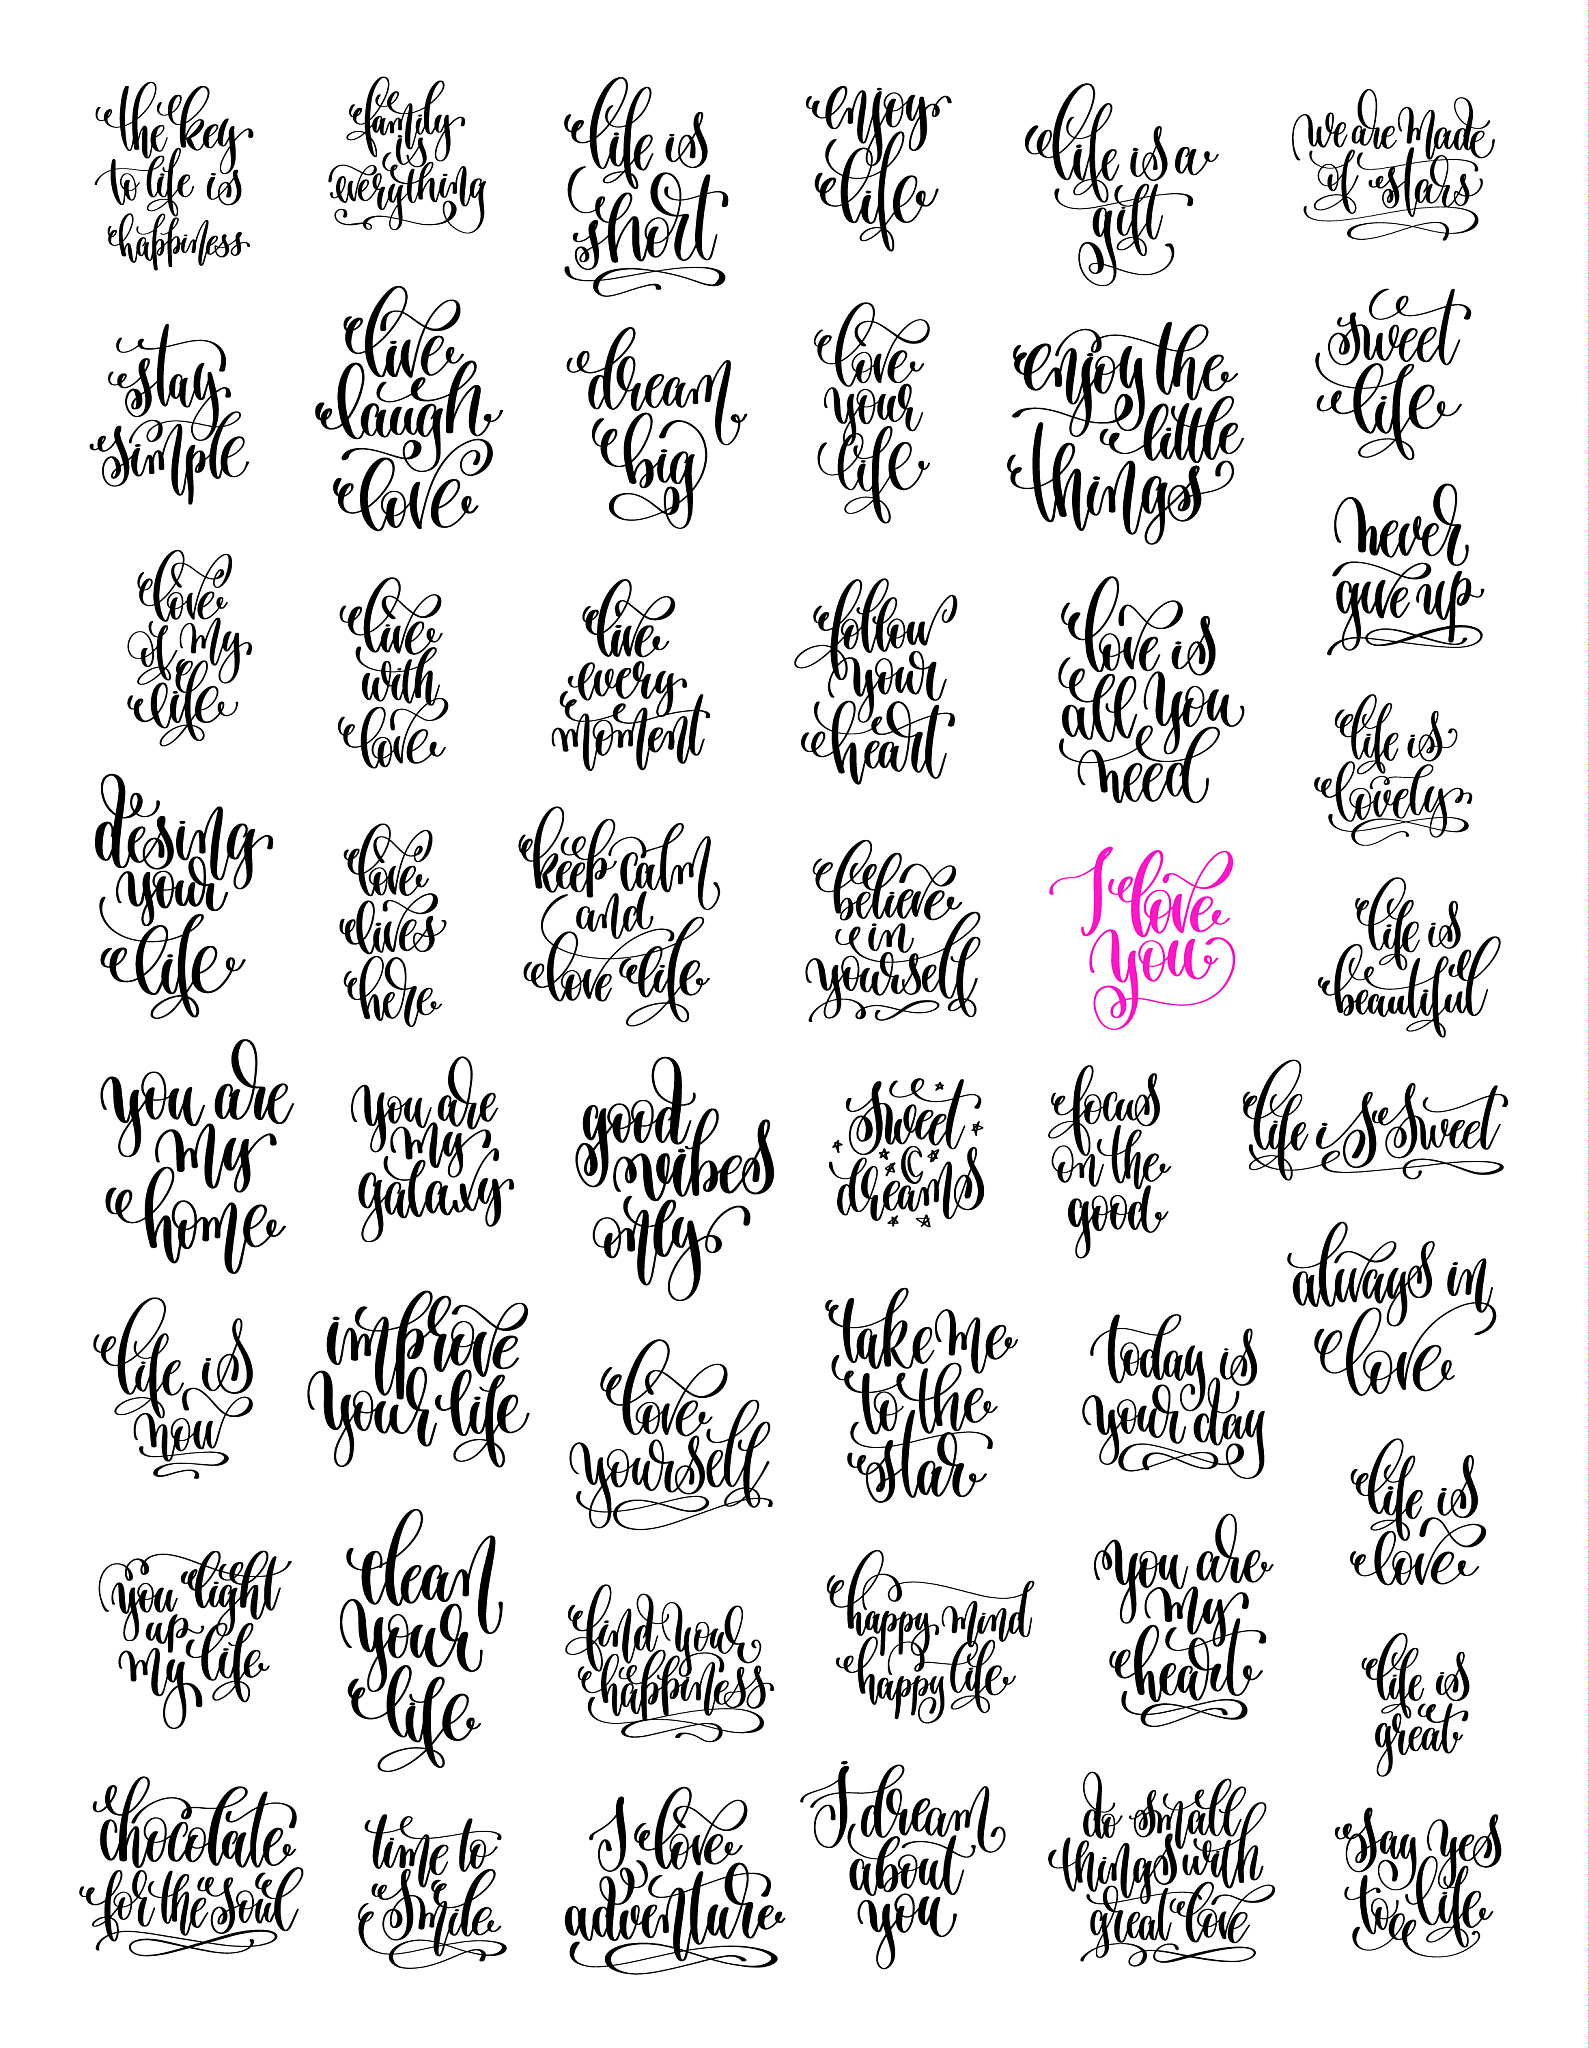 the key
to life is
happiness
family
is
everything
life is
short
enjoy
life
life is a
gift
we are made
of stars
stay
simple
live
laugh
love
dream
big
love
your
life
enjoy the
little
things
sweet
life
never
give up
love
of my
life
live
with
love
live
every
moment
follow
your
heart
love is
all you
need
life is
lovely
desing
your
life
love
lives
here
keep calm
and
love life
believe
in
yourself
I love
you
life is
beautiful
you are
my
home
you are
my
galaxy
good
vibes
only
sweet
dreams
focus
on the
good
life is sweet
always in
love
life is
now
improve
your life
love
yourself
take me
to the
star
today is
your day
life is
love
you light
up
my life
clean
your
life
find your
happiness
happy mind
happy life
you are
my
heart
life is
great
chocolate
for the soul
time to
smile
I love
adventure
I dream
about
you
do small
things with
great love
say yes
to life